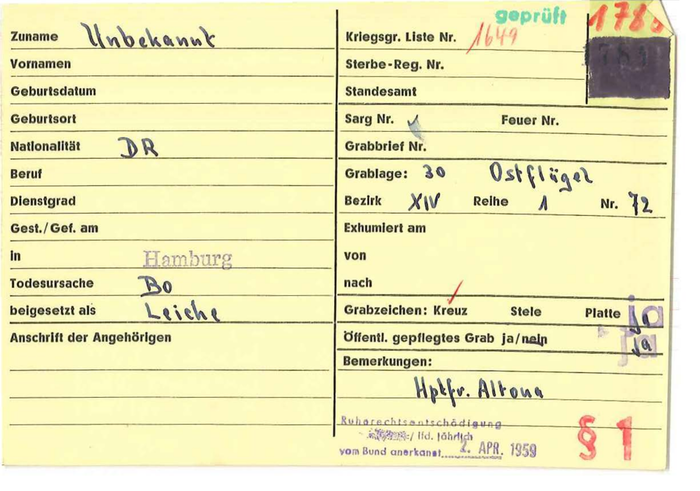 geprüft
178
Zuname Unbekannt
Kriegsgr. Liste Nr. 1649
Vornamen
Sterbe-Reg. Nr.
Geburtsdatum
Standesamt
Geburtsort
Sarg Nr. ✓ Feuer Nr.
Nationalität DR
Grabbrief Nr.
Beruf
Grablage: 30 Ostflügel
Dienstgrad
Bezirk XIV Reihe 1 Nr. 72
Gest./Gef. am
Exhumiert am
in Hamburg
von
Todesursache Bo
nach
beigesetzt als Leiche
Grabzeichen: Kreuz Stele Platte ja
Anschrift der Angehörigen
Öffentl. gepflegtes Grab ja/nein ja
Bemerkungen:
Hptfr. Altona
Ruherechtsentschädigung
/ lfd. jährlich
vom Bund anerkannt 2. APR. 1959
§ 1